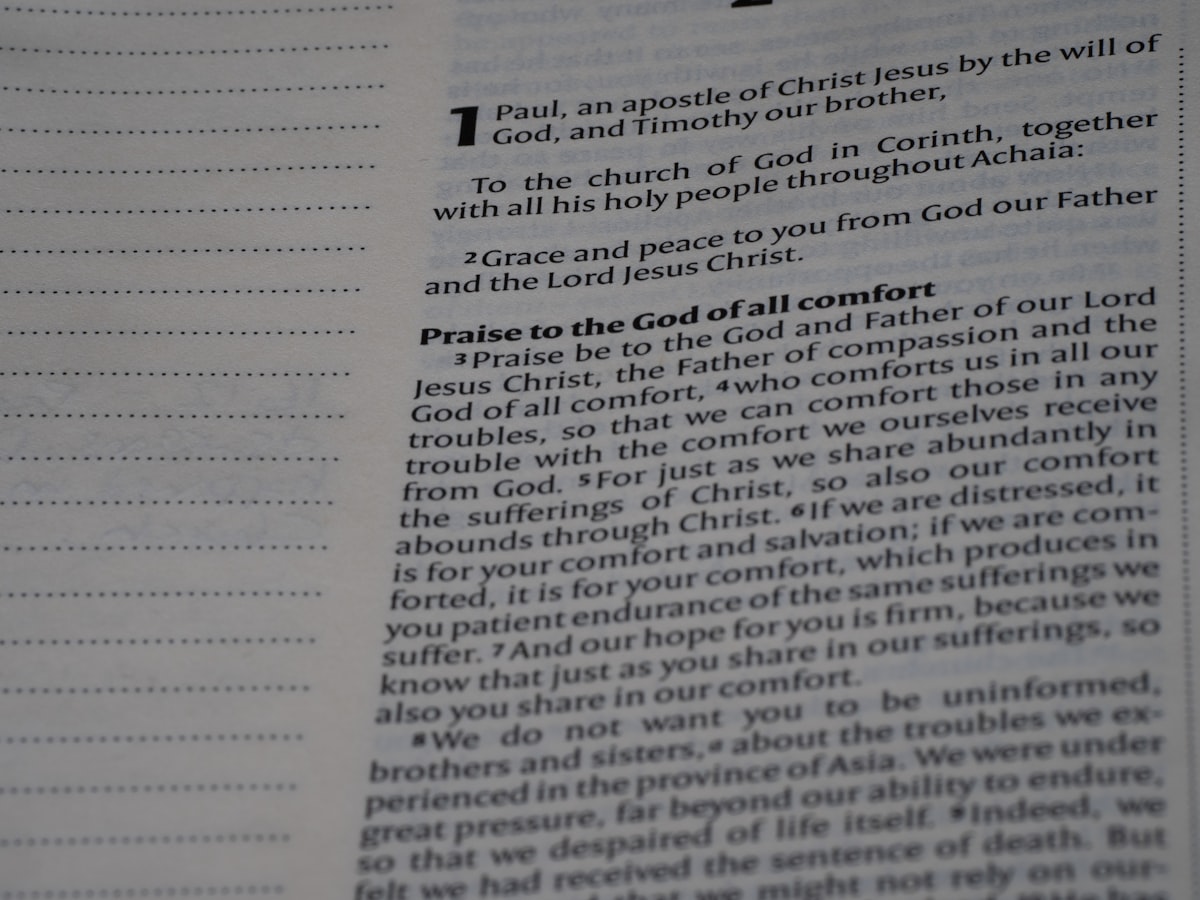 1 Paul, an apostle of Christ Jesus by the will of
God, and Timothy our brother,
To the church of God in Corinth, together
with all his holy people throughout Achaia:
2 Grace and peace to you from God our Father
and the Lord Jesus Christ.
Praise to the God of all comfort
3 Praise be to the God and Father of our Lord
Jesus Christ, the Father of compassion and the
God of all comfort, 4 who comforts us in all our
troubles, so that we can comfort those in any
trouble with the comfort we ourselves receive
from God. 5 For just as we share abundantly in
the sufferings of Christ, so also our comfort
abounds through Christ. 6 If we are distressed, it
is for your comfort and salvation; if we are com-
forted, it is for your comfort, which produces in
you patient endurance of the same sufferings we
suffer. 7 And our hope for you is firm, because we
know that just as you share in our sufferings, so
also you share in our comfort.
8 We do not want you to be uninformed,
brothers and sisters, a about the troubles we ex-
perienced in the province of Asia. We were under
great pressure, far beyond our ability to endure,
so that we despaired of life itself. 9 Indeed, we
felt we had received the sentence of death. But
that we might not rely on our-